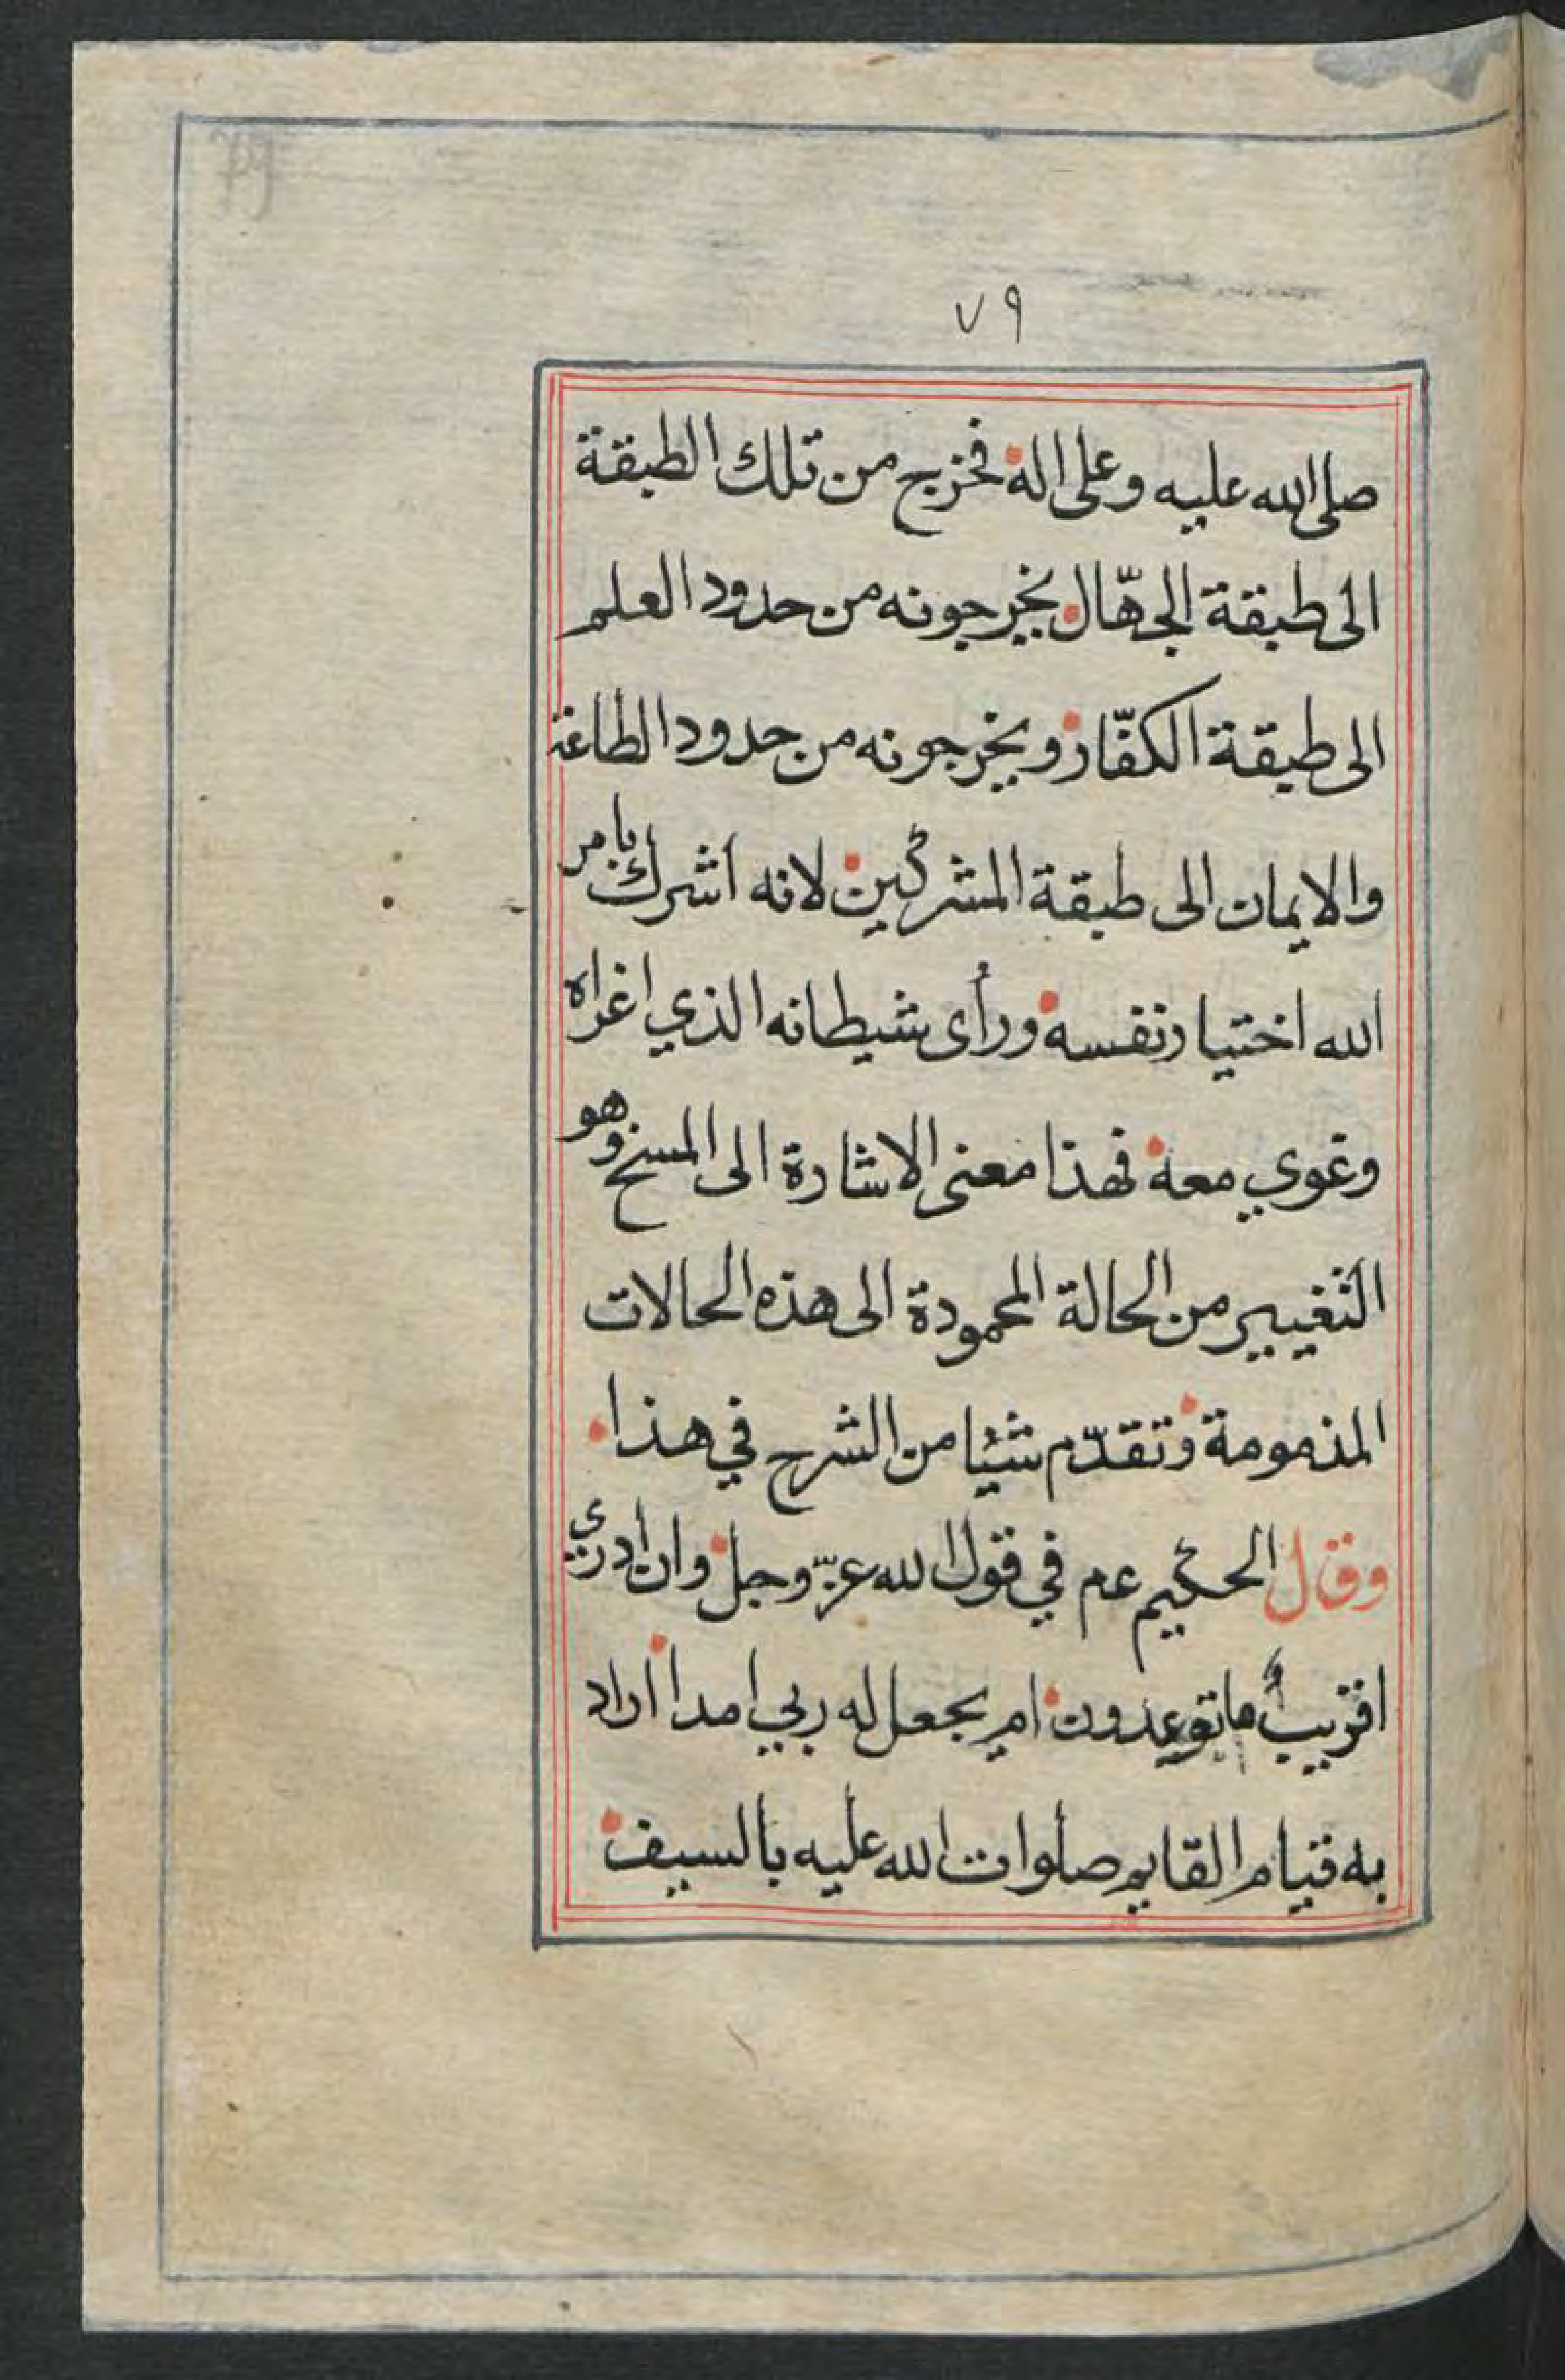 79
٧٩
صلى الله عليه وعلى اله فخرج من تلك الطبقة
الى طبقة الجهّال بخروجونه من حدود العلم
الى طبقة الكفّار وبخروجونه من حدود الطاعة
والايمان الى طبقة المشركين لانه اشرك بامر
الله اختيار نفسه ورأى شيطانه الذي اغراه
وغوي معه فهذا معنى الاشارة الى المسخ وهو
التغيير من الحالة المحمودة الى هذه الحالات
المذمومة وتقدّم شيئا من الشرح في هذا
وقال الحكيم عم في قول الله عزّ وجل وان أدري
اقريبٌ ما توعدون ام يجعل له ربي امدا اراد
به قيام القايم صلوات الله عليه بالسيف